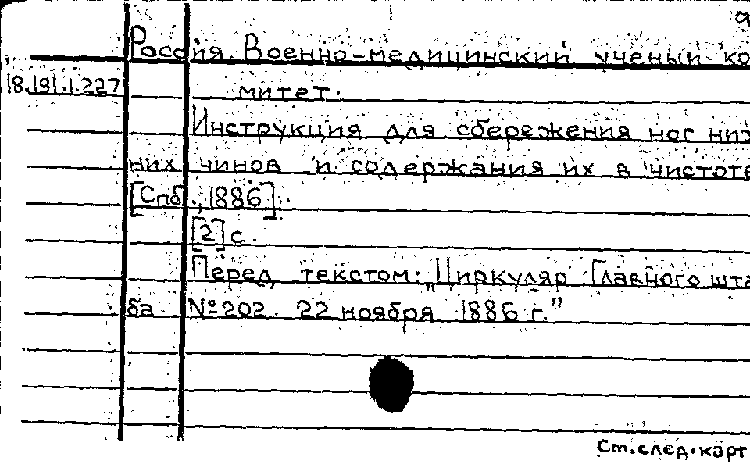 Россия. Военно-медицинский ученый ко
18.191.1.227
митет.
Инструкция для сбережения ног ниж
них чинов и содержания их в чистоте
[Спб., 1886].
[2] с.
Перед текстом: „Циркуляр Главного шта
ба №202. 22 ноября 1886 г."
См. след. карт